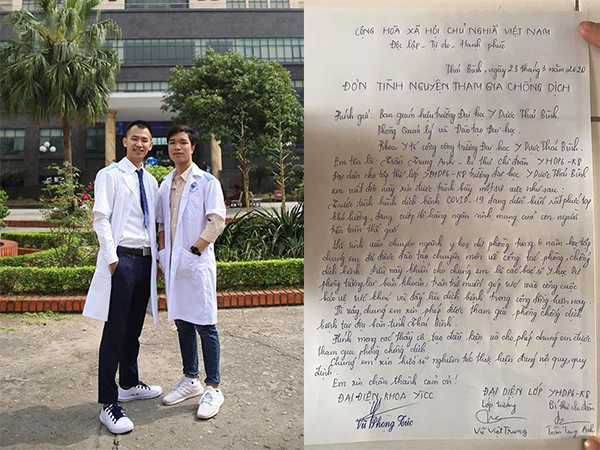 CỘNG HÒA XÃ HỘI CHỦ NGHĨA VIỆT NAM
Độc lập - Tự do - Hạnh phúc
Thái Bình, ngày 23 tháng 3 năm 2020
ĐƠN TÌNH NGUYỆN THAM GIA CHỐNG DỊCH
Kính gửi: Ban giám hiệu trường Đại học Y Dược Thái Bình.
Phòng Quản lý và Đào tạo Đại học.
Khoa Y tế công cộng trường Đại học Y Dược Thái Bình.
Em tên là: Trần Trung Anh - Bí thư chi đoàn YHDP6-K8
Đại diện cho tập thể lớp YHDP6-K8 trường đại học Y Dược Thái Bình
em viết đơn này xin được trình bày một việc như sau:
Trước tình hình dịch bệnh COVID-19 đang diễn biến rất phức tạp
khó lường, đang cướp đi hàng ngàn sinh mạng của con người
trên toàn thế giới.
Là sinh viên chuyên ngành y học dự phòng trong 6 năm học tập
chúng em đã được đào tạo chuyên môn về công tác phòng, chống
dịch bệnh. Điều này khiến cho chúng em là các bác sĩ Y học Dự
phòng tương lai băn khoăn, trăn trở muốn góp sức vào công cuộc
bảo vệ sức khỏe và đẩy lùi dịch bệnh trong cộng đồng hiện nay.
Vì vậy, chúng em xin phép được tham gia phòng chống dịch
bệnh tại địa bàn tỉnh Thái Bình.
Kính mong các thầy cô tạo điều kiện và cho phép chúng em được
tham gia phòng chống dịch.
Chúng em xin hứa sẽ nghiêm túc thực hiện đúng nội quy, quy
định.
Em xin chân thành cảm ơn!
ĐẠI DIỆN KHOA YTCC
ĐẠI DIỆN LỚP YHDP6-K8
Lớp trưởng
Bí thư chi đoàn
Vũ Phong Túc
Vũ Việt Trung
Trần Trung Anh